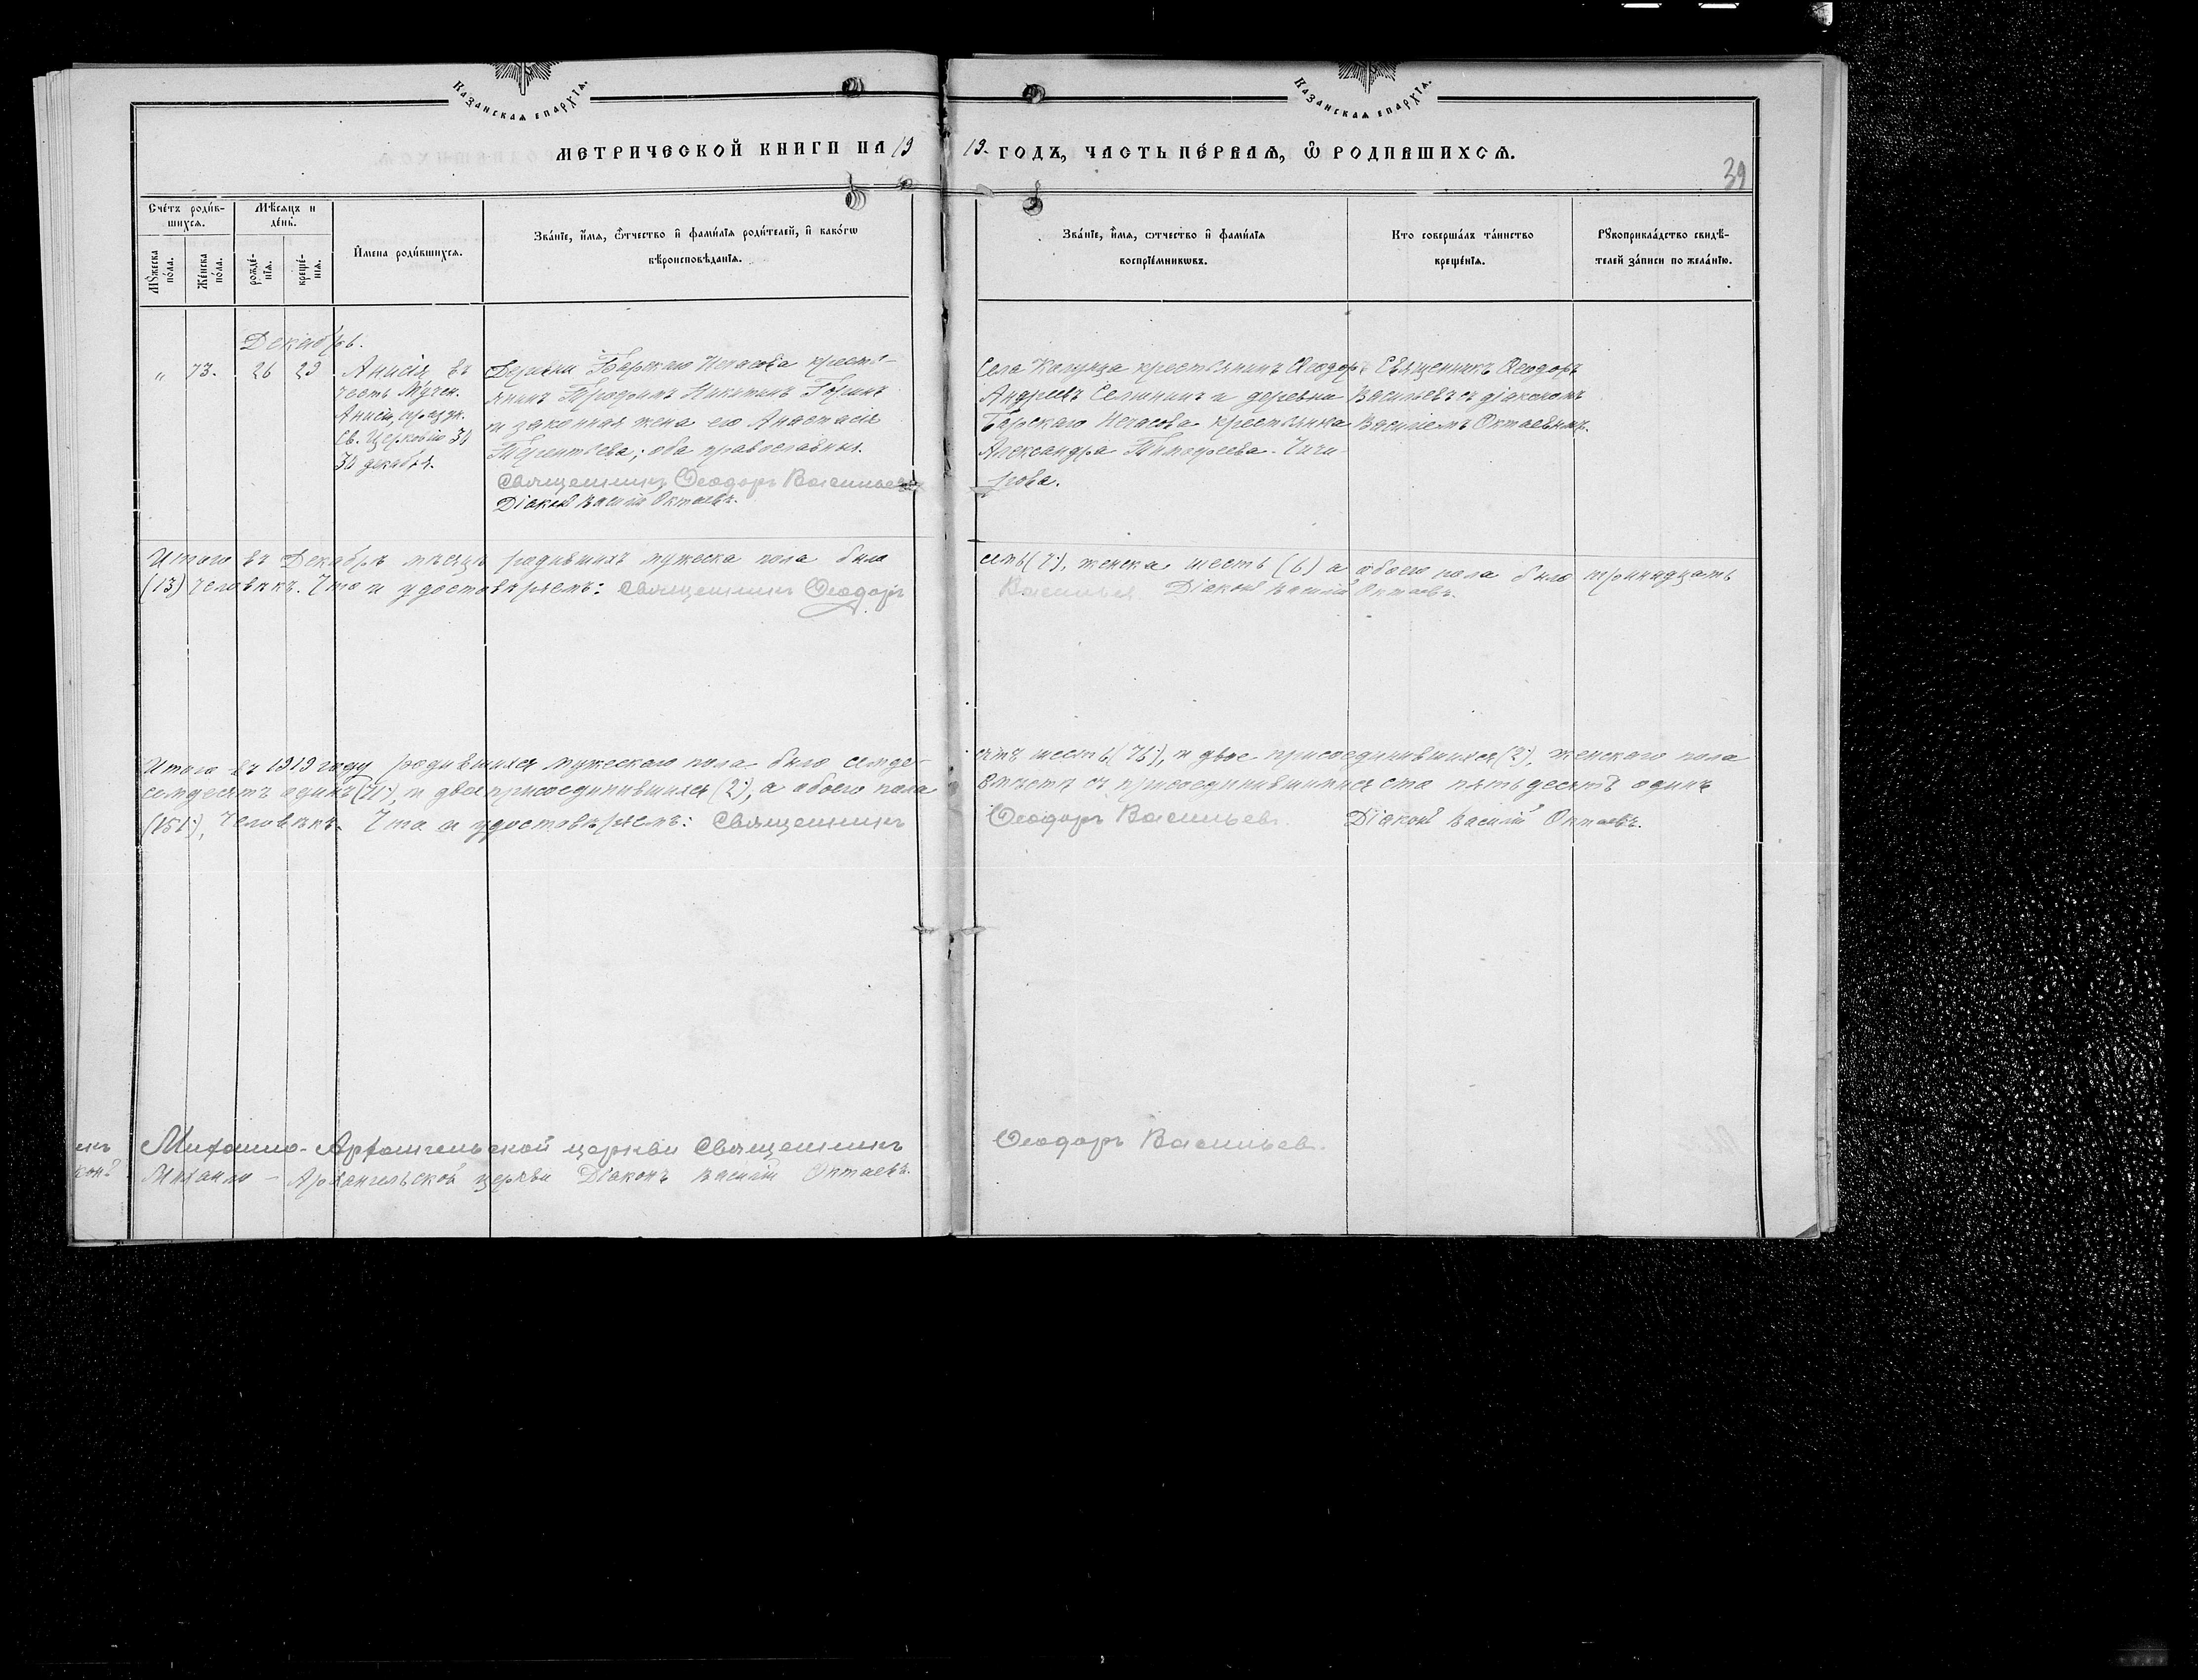 КАЗАНСКАѦ ЕПАРХЇѦ.
КАЗАНСКАѦ ЕПАРХЇѦ.
МЕТРИЧЕСКОЙ КНИГИ НА 19
19. ГОДЪ, ЧАСТЬ ПЕ́РВАѦ, Ѽ РОДИВШИХСѦ.
39
Сче́тъ роди́в-
шихсѧ.
Мѣ́сяцъ и
де́нь.
Мꙋ́жеска по́ла.
Же́нска по́ла.
рожде́-
нїѧ.
креще́-
нїѧ.
И҆́мена роди́вшихсѧ.
Зва́нїе, и҆́мѧ, ѻ҆́тчество и҆ фами́лїѧ роди́телей, и҆ како́гѡ
вѣроисповѣ́данїѧ.
Зва́нїе, и҆́мѧ, ѻ҆́тчество и҆ фами́лїѧ
воспрїе́мникѡвъ.
Кто соверша́лъ та́инство
креще́нїѧ.
Рꙋкоприкла́дство свидѣ́-
телей за́писи по жела́нїю.
Декабрь.
„ 73. 26 29
Анисія въ
честь Мучен.
Анисіи, праздн.
Св. Церковію 30
30 декабря.
Деревни Барскаго Исасова кресть-
янинъ Трофимъ Никитинъ
и законная жена его Анастасія
Терентьева; оба православныя.
Священникъ Ѳеодоръ Васильевъ
Діаконъ Василій Октаевъ.
Села крестьянинъ Ѳеодоръ
Андреевъ и деревни
Барскаго Исасова крестьянка
Александра Тимофеева Чичи-
рова.
Священникъ Ѳеодоръ
Васильевъ съ діакономъ
Василіемъ Октаевымъ.
Итого въ Декабрѣ мѣсяцѣ родившихъ мужеска пола было
семь (7), женска шесть (6) а обоего пола было тринадцать
(13) человѣкъ. Что и удостовѣряемъ: Священникъ Ѳеодоръ
Васильев Діаконъ Василій Октаевъ.
Итого въ 1919 году родившихся мужескаго пола было семде-
сятъ шесть (76), и двое присоединившихся (2), женскаго пола
семдесятъ одинъ (71), и двѣ присоединившихся (2), а обоего пола
вмѣстѣ съ присоединившимися сто пятьдесятъ одинъ
(151), человѣкъ. Что и удостовѣряемъ: Священникъ
Ѳеодоръ Васильевъ. Діаконъ Василій Октаевъ.
Михаило-Архангельской церкви Священникъ
Ѳеодоръ Васильев.
Михаило-Архангельской церкви Діаконъ Василій Октаевъ.